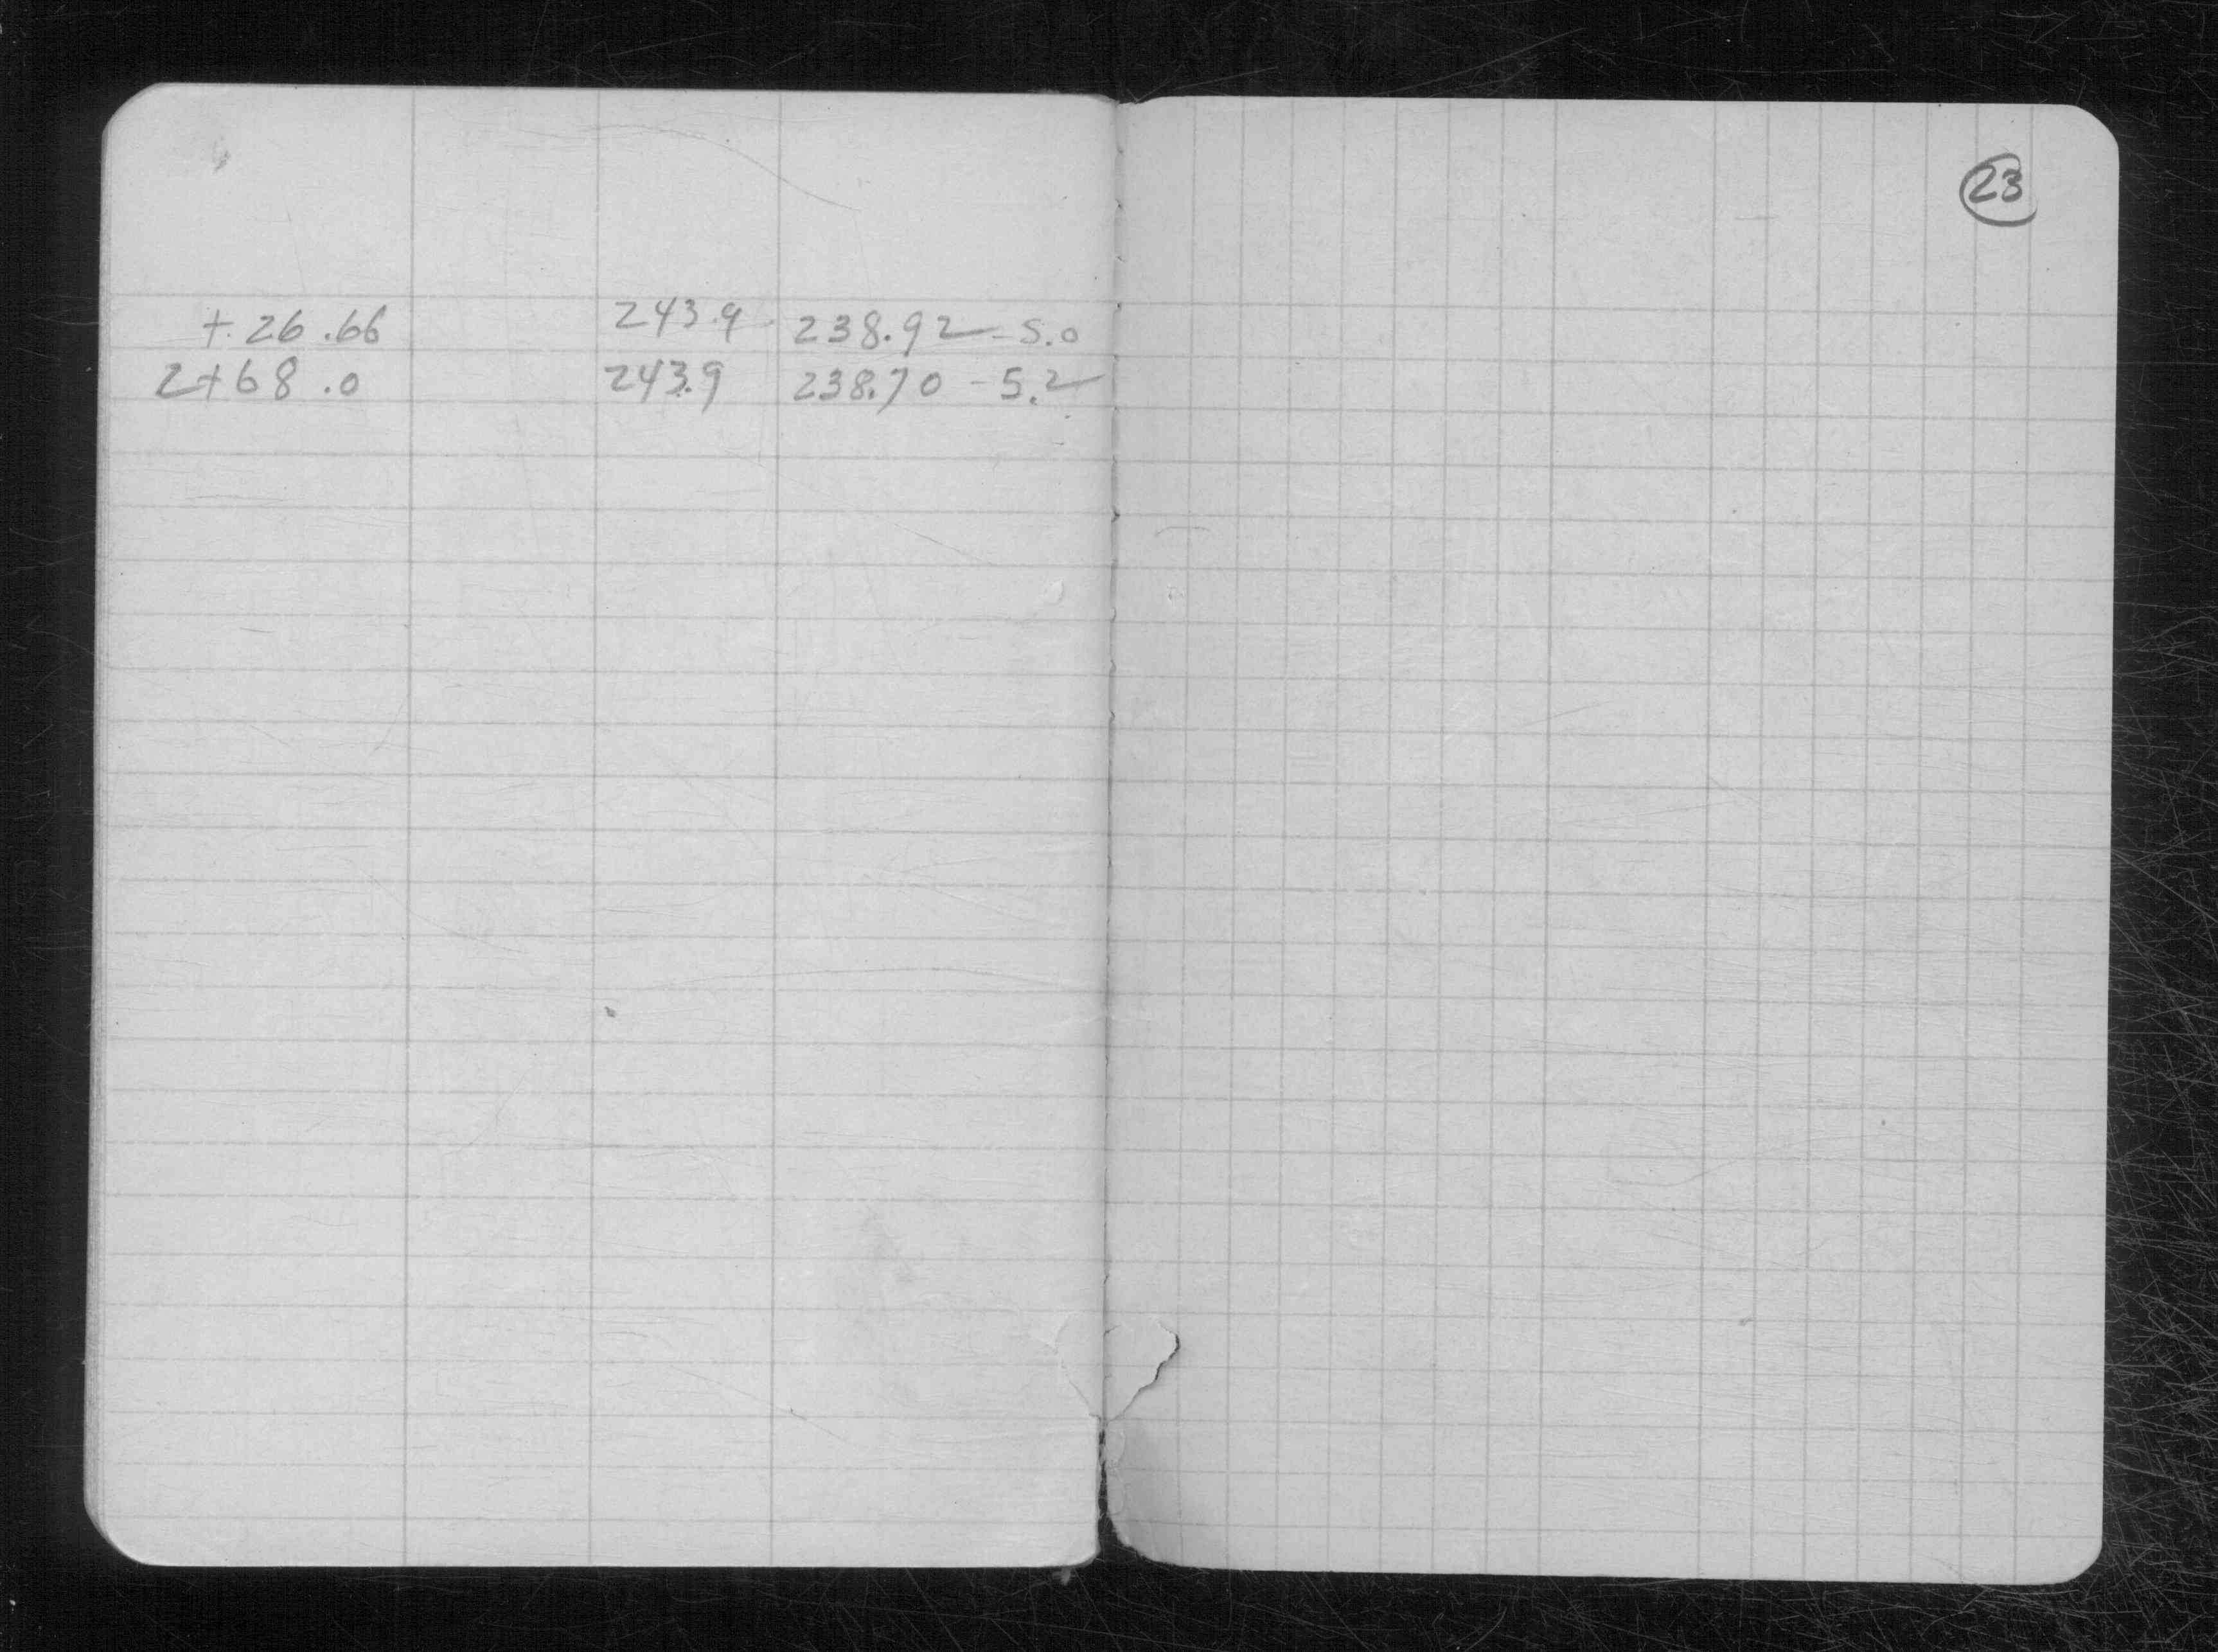 23
+ 26.66 243.9 238.92 - 5.0
2+68.0 243.9 238.70 - 5.2